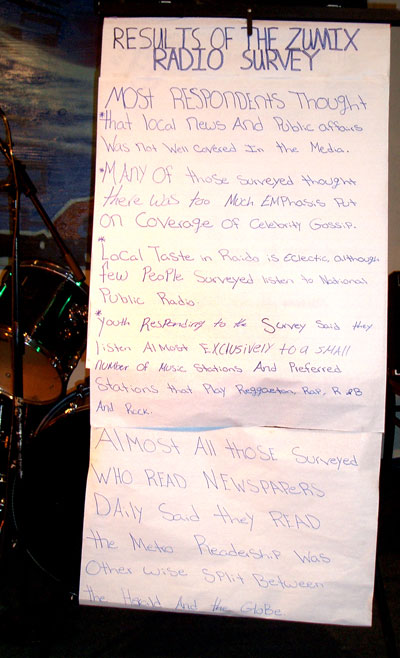 RESULTS OF THE ZUMIX
RADIO SURVEY
MOST RESPONDENTS Thought
*that local News And Public affairs
Was Not Well covered In the Media.
*MANY Of those surveyed thought
there was too Much EMPhasis Put
on Coverage Of Celebrity Gossip.
*
Local Taste in Raido is Eclectic, although
few People Surveyed listen to National
Public Radio.
*Youth Responding to the Survey Said they
listen Almost EXCLUSIVELY to a SMAll
Number of Music Stations And Preferred
Stations that Play Reggaeton, Rap, R &B
And Rock.
Almost All those Surveyed
WHO READ NEWSPAPERS
DAILY Said they READ
the Metro. Readership Was
Other wise Split Between
the Herald And the Globe.